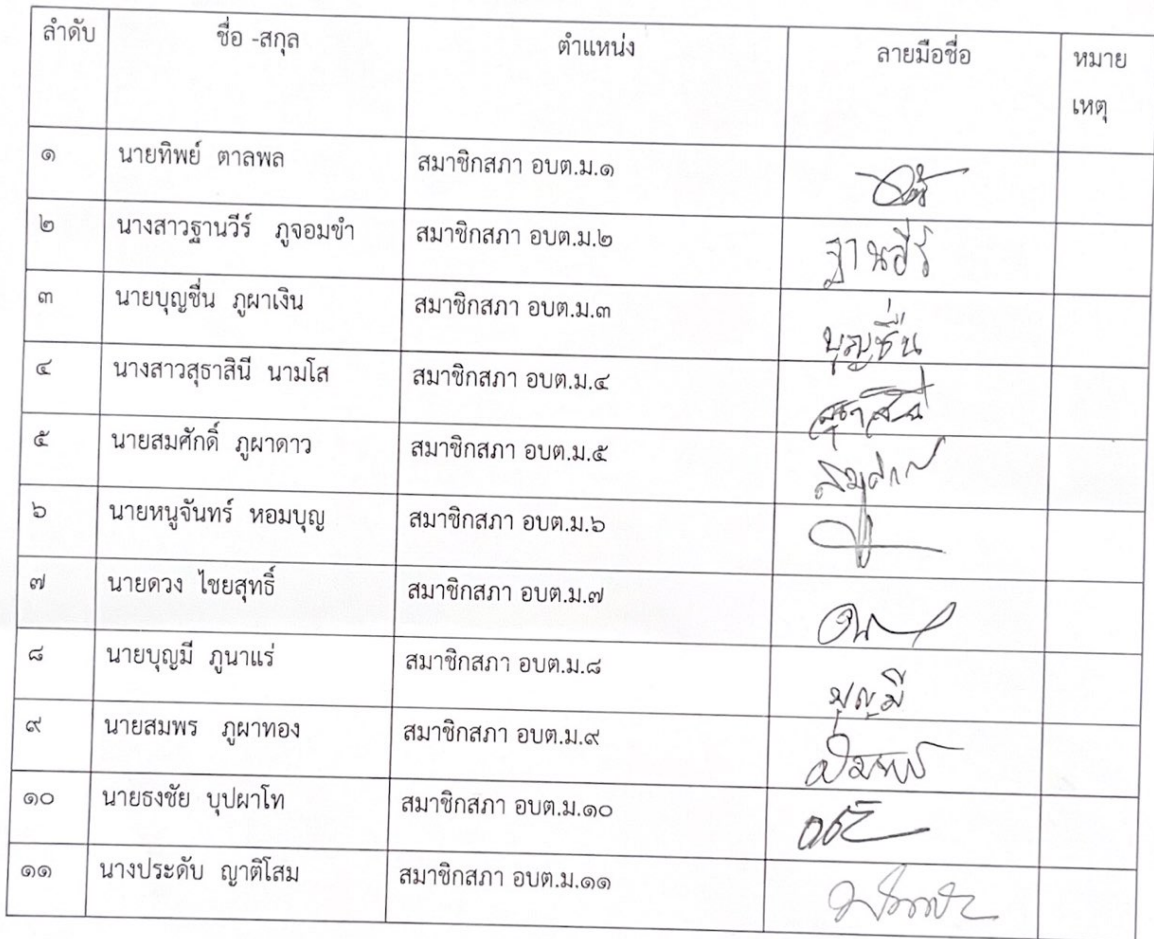 ลำดับ ชื่อ -สกุล ตำแหน่ง ลายมือชื่อ หมาย
เหตุ
๑ นายทิพย์ ตาลพล สมาชิกสภา อบต.ม.๑
๒ นางสาวฐานวีร์ ภูจอมขำ สมาชิกสภา อบต.ม.๒ ฐานวีร์
๓ นายบุญชื่น ภูผาเงิน สมาชิกสภา อบต.ม.๓ บุญชื่น
๔ นางสาวสุธาสินี นามโส สมาชิกสภา อบต.ม.๔ สุธาสินี
๕ นายสมศักดิ์ ภูผาดาว สมาชิกสภา อบต.ม.๕
๖ นายหนูจันทร์ หอมบุญ สมาชิกสภา อบต.ม.๖
๗ นายดวง ไชยสุทธิ์ สมาชิกสภา อบต.ม.๗
๘ นายบุญมี ภูนาแร่ สมาชิกสภา อบต.ม.๘ บุญมี
๙ นายสมพร ภูผาทอง สมาชิกสภา อบต.ม.๙ สมพร
๑๐ นายธงชัย บุปผาโท สมาชิกสภา อบต.ม.๑๐
๑๑ นางประดับ ญาติโสม สมาชิกสภา อบต.ม.๑๑